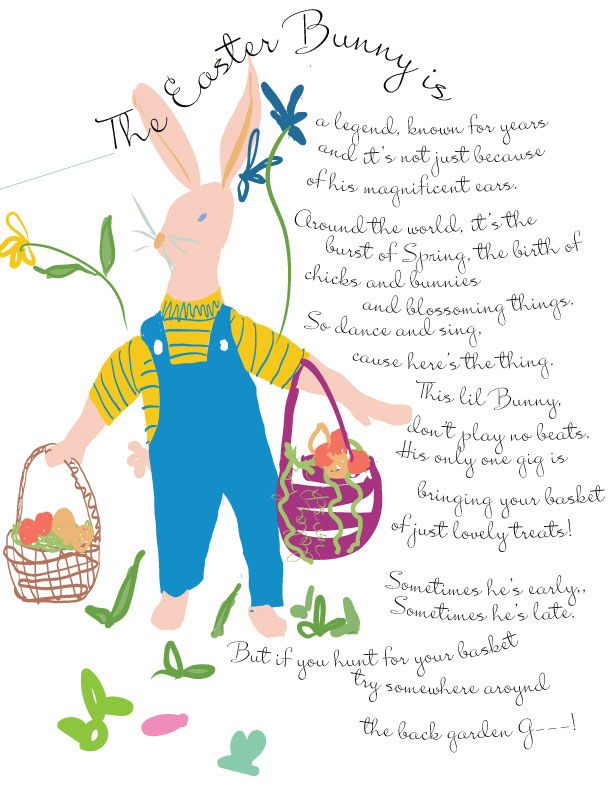 The Easter Bunny is
a legend, known for years
and it's not just because
of his magnificent ears.
Around the world, it's the
burst of Spring, the birth of
chicks and bunnies
and blossoming things.
So dance and sing,
cause here's the thing.
This lil Bunny,
don't play no beats.
His only one gig is
bringing your basket
of just lovely treats!
Sometimes he's early,,
Sometimes he's late.
But if you hunt for your basket
try somewhere aroynd
the back garden G---!